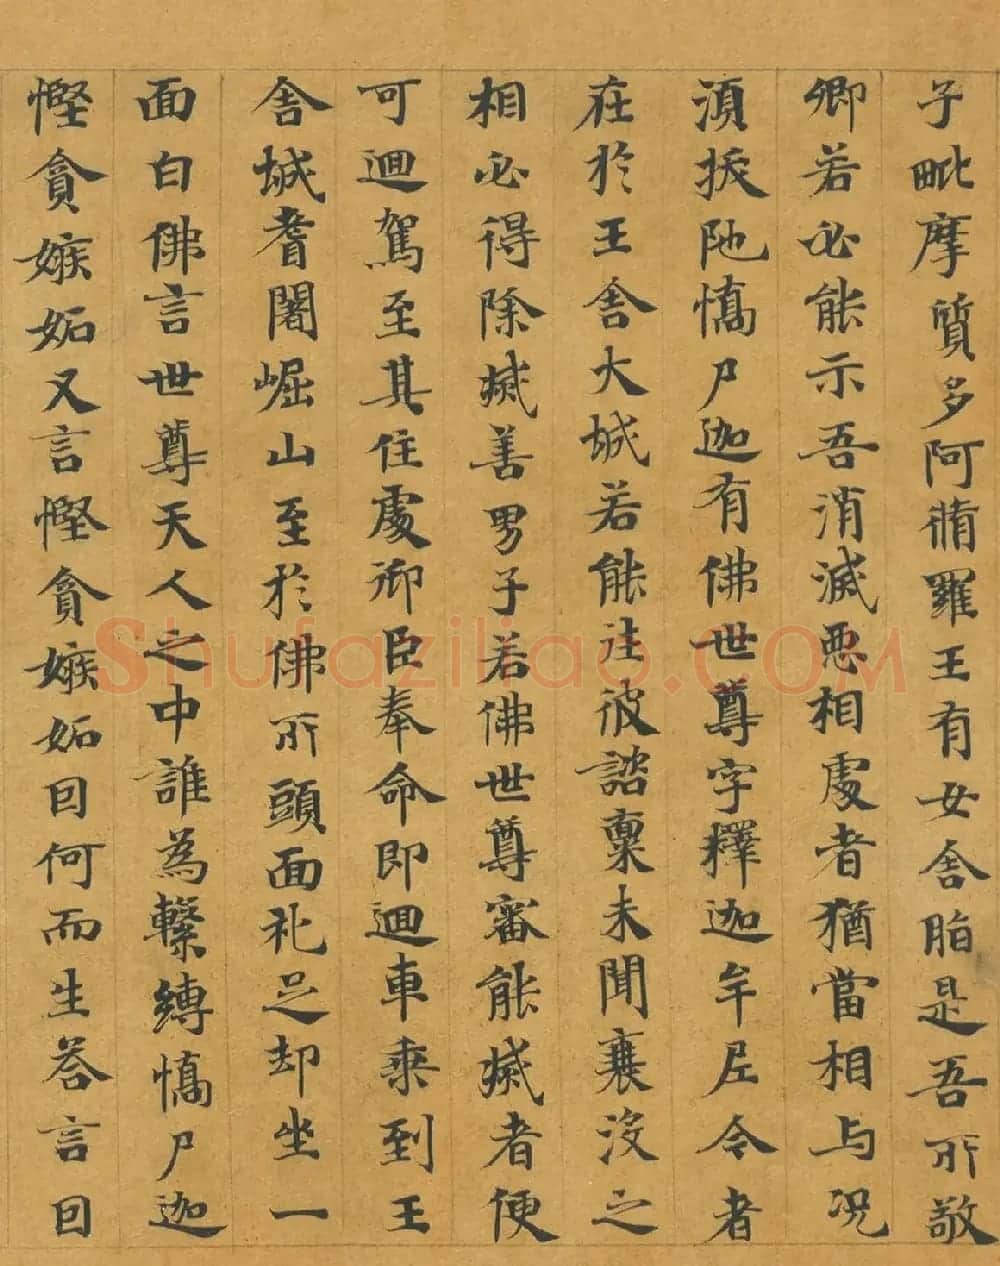 子毗摩質多阿脩羅王有女舍脂是吾所敬
卿若必能示吾消滅惡相處者猶當相与況
須拔陁憍尸迦有佛世尊字釋迦牟尼今者
在於王舍大城若能往彼諮稟未聞衰沒之
相必得除滅善男子若佛世尊審能滅者便
可迴駕至其住處御臣奉命即迴車乘到王
舍城耆闍崛山至於佛所頭面礼足却坐一
面白佛言世尊天人之中誰為繫縛憍尸迦
慳貪嫉妬又言慳貪嫉妬因何而生荅言因
Shufaziliao.COM